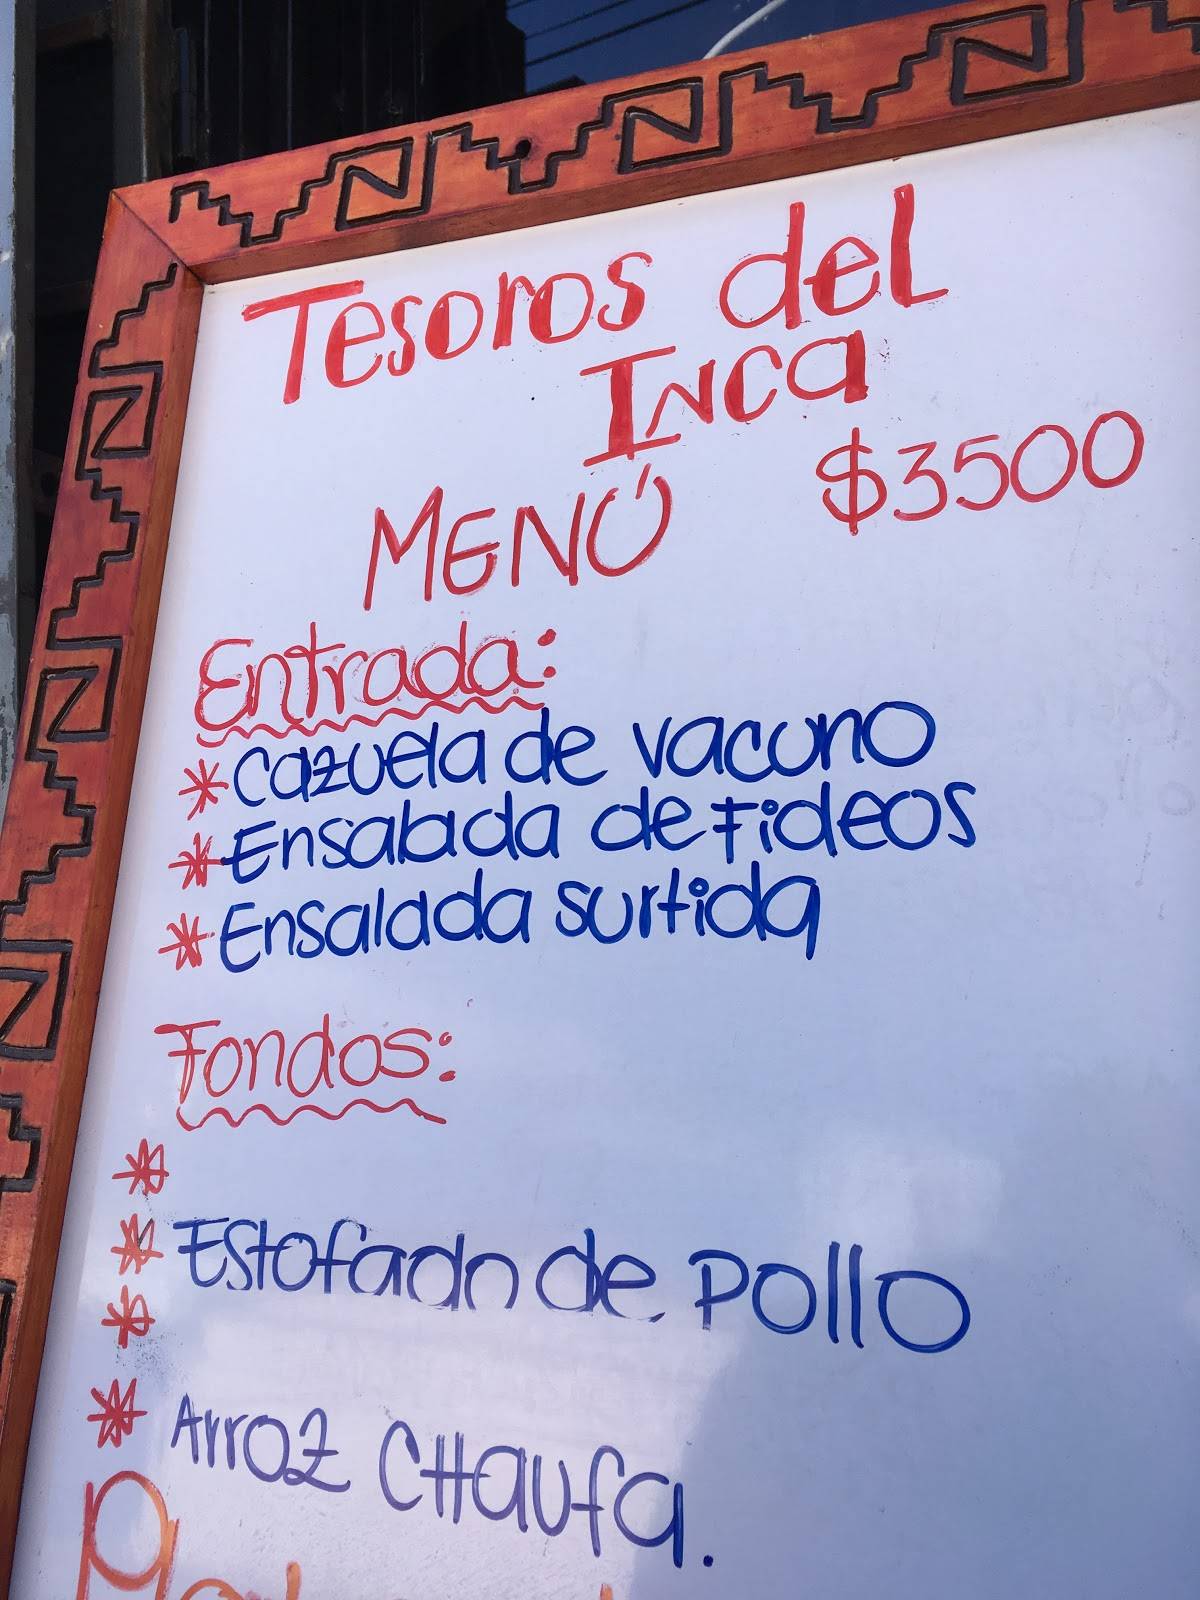 Tesoros del
Inca
MENÚ $3500
Entrada:
* Cazuela de vacuno
* Ensalada de Fideos
* Ensalada surtida
Fondos:
*
* Estofado de pollo
*
* Arroz CHaufa.